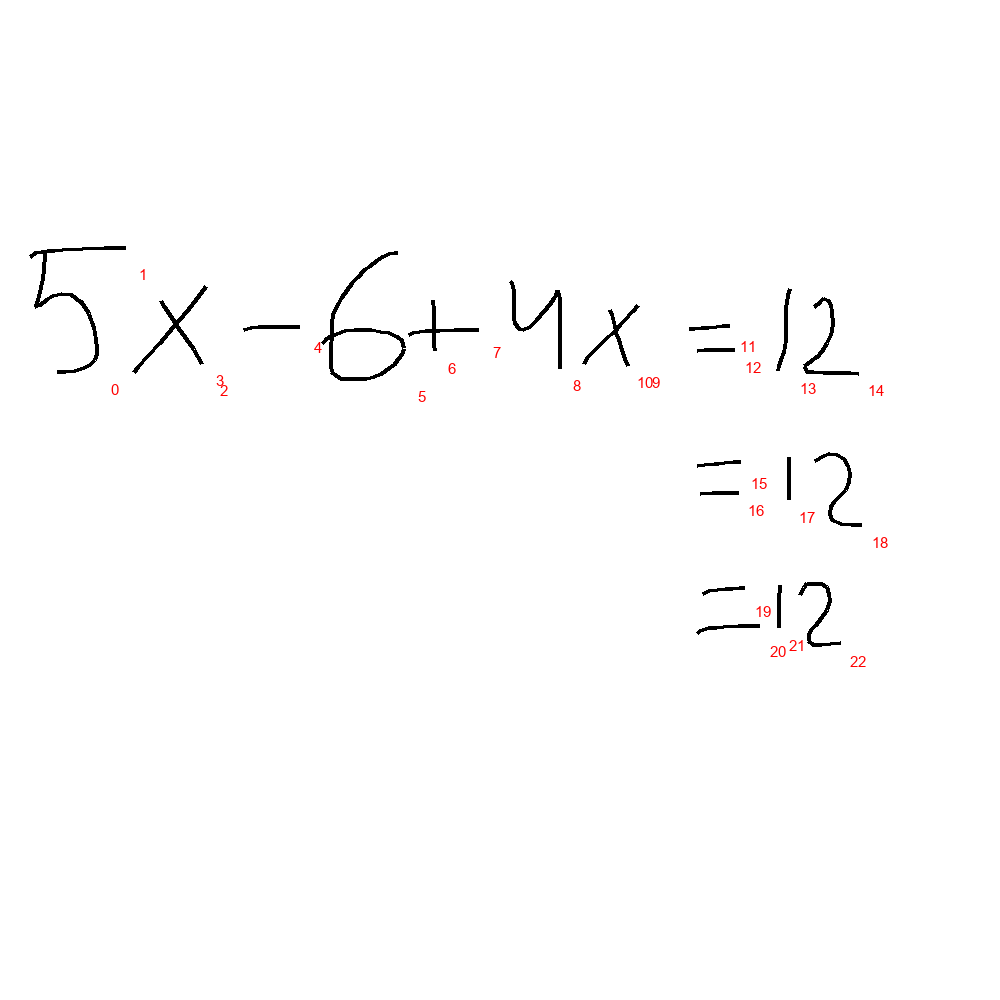 5x-6+4x=12
=12
=12
1
0
3
2
4
5
6
7
8
109
11
12
13
14
15
16
17
18
19
20
21
22